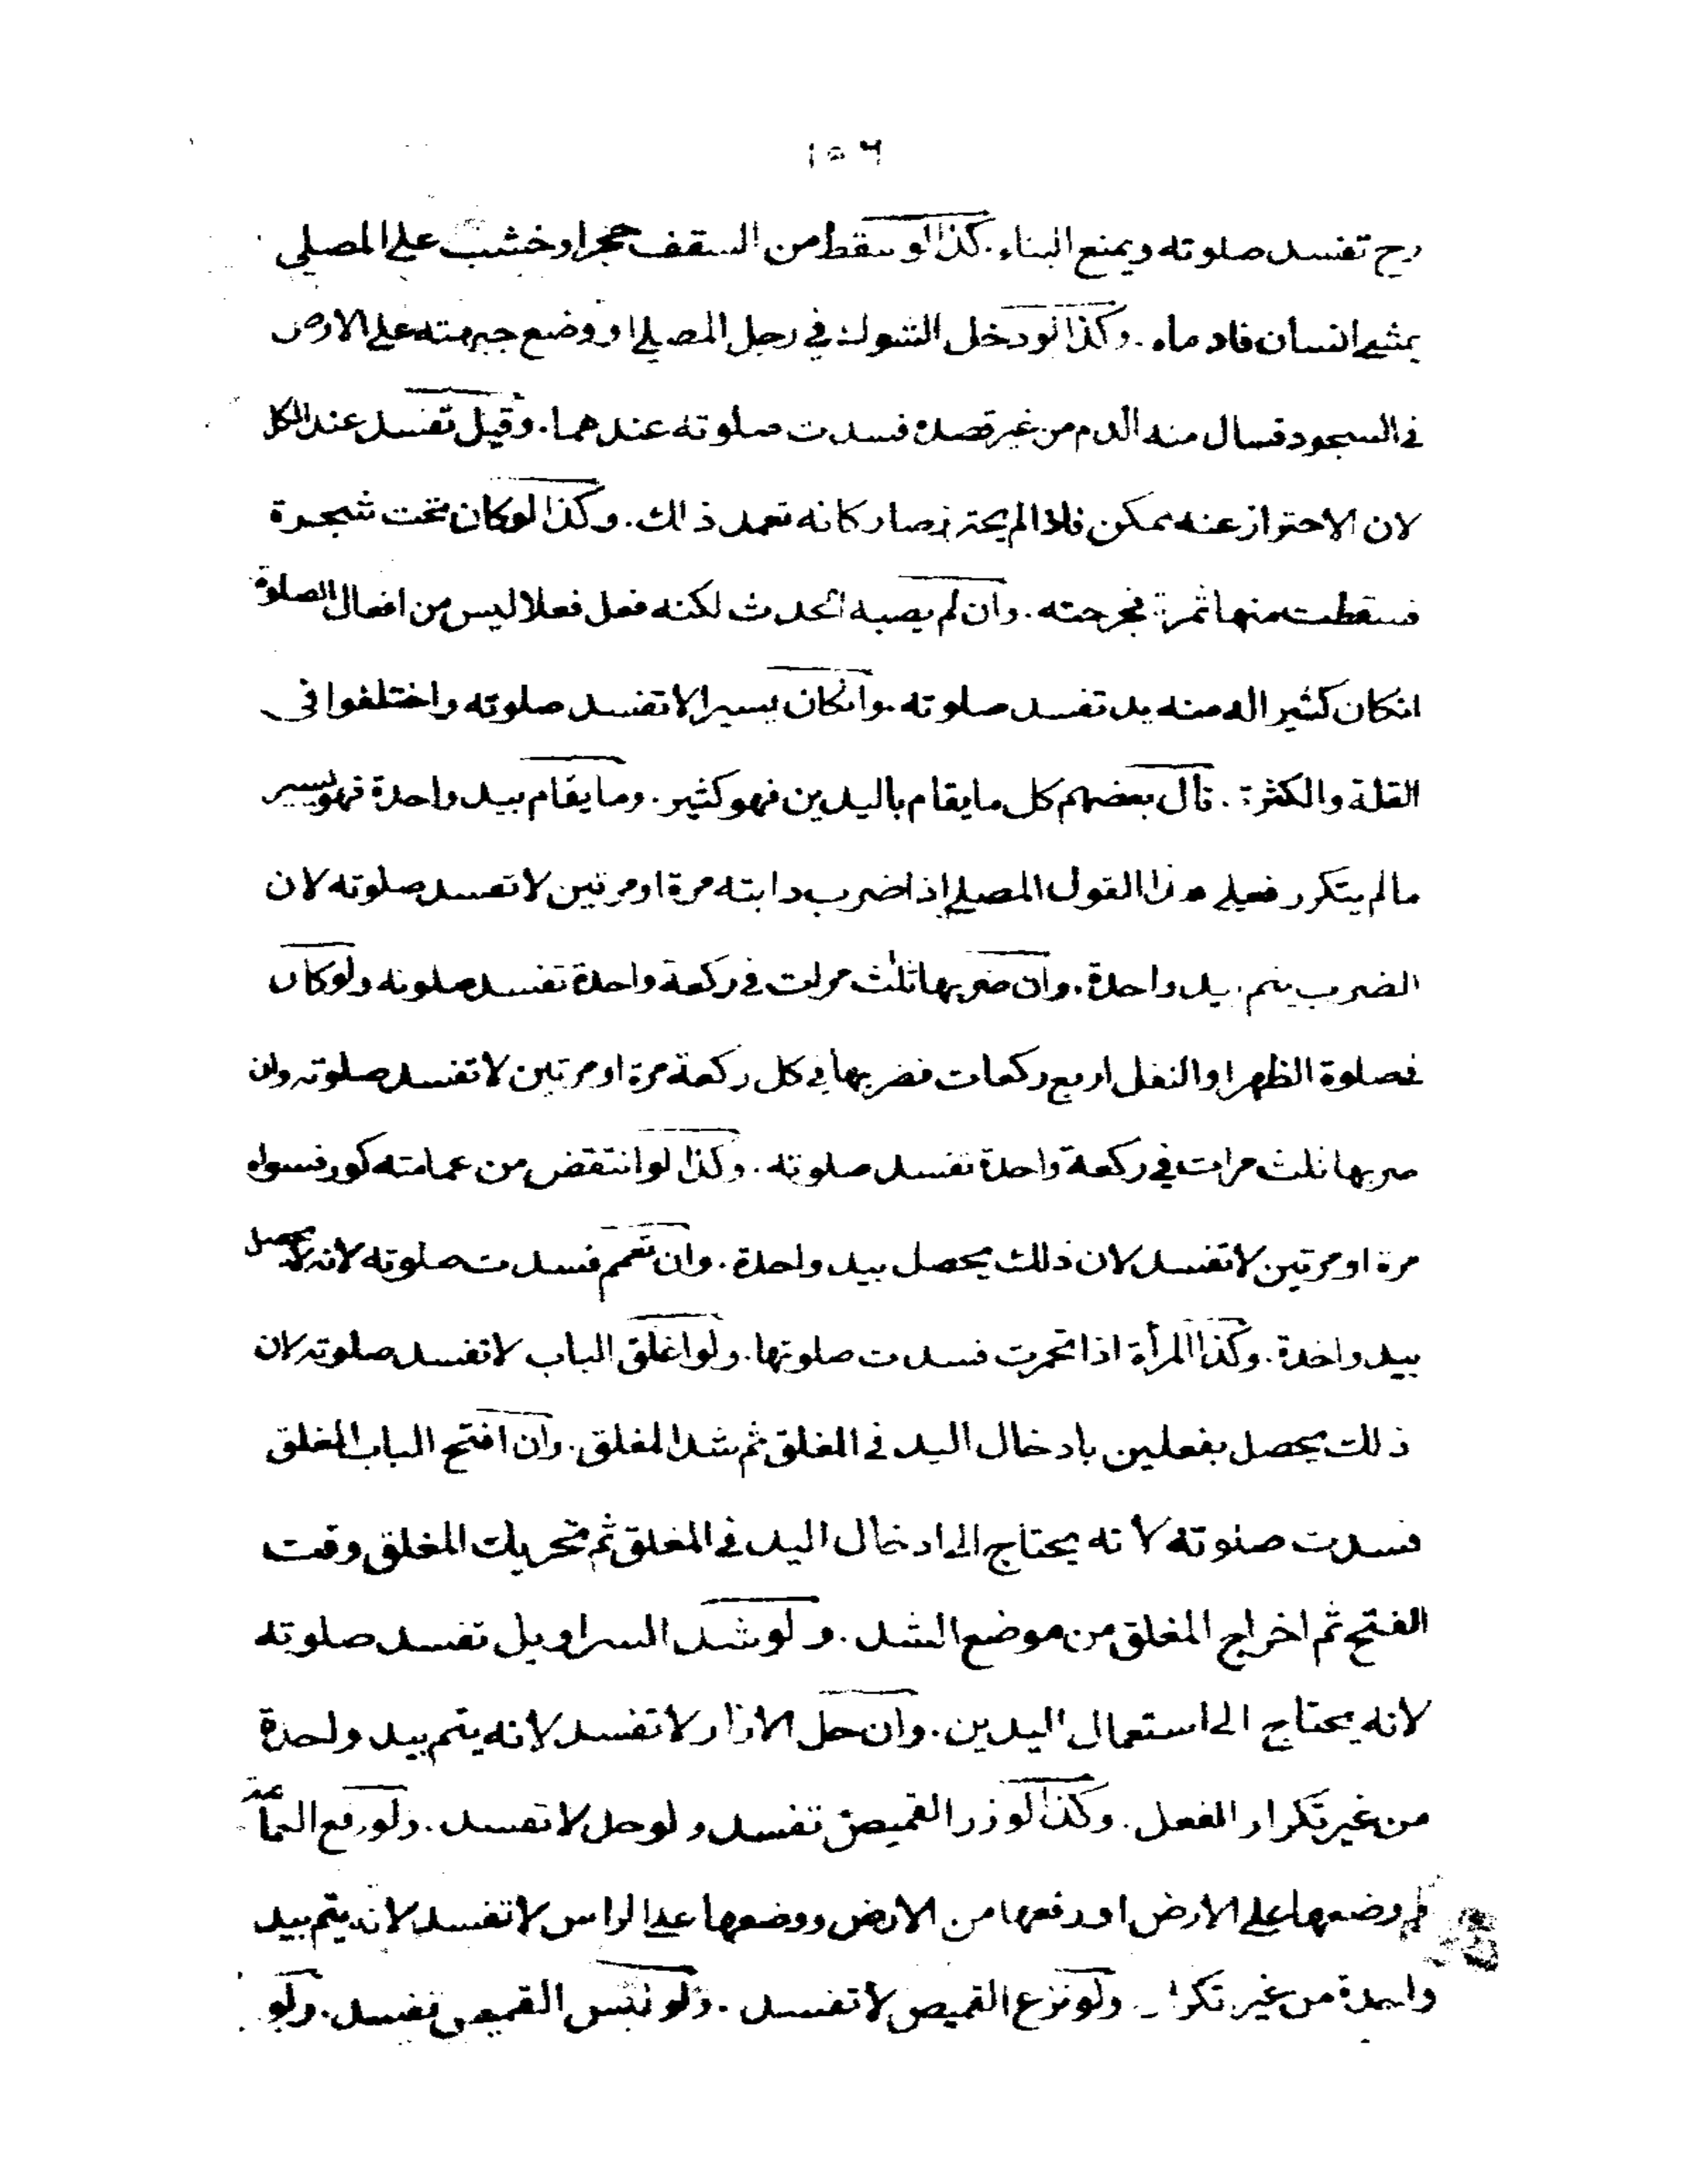 ١٥٦
رح تفسد صلوته ويمنع البناء. كذا لو سقط من السقف حجر او خشب على المصلي
بمشي انسان فادماه. وكذا لو دخل الشوك في رجل المصلي او وضع جبهته على الارض
في السجود فسال منه الدم من غير قصده فسدت صلوته عندهما. وقيل تفسد عند الكل
لان الاحتراز عنه ممكن فاذا لم يحترز صار كانه تعمد ذالك. وكذا لو كان تحت شجرة
فسقطت منها ثمرة فجرحته. وان لم يصبه الحدث لكنه فعل فعلا ليس من افعال الصلوة
انكان كثيرا منه تفسد صلوته. وانكان يسيرا لا تفسد صلوته واختلفوا في
القلة والكثرة. قال بعضهم كل ما يقام باليدين فهو كثير. وما يقام بيد واحدة فهو يسير
ما لم يتكرر فعلى هذا القول المصلي اذا ضرب دابته مرة او مرتين لا تفسد صلوته لان
الضرب يتم بيد واحدة. وان ضربها ثلث مرات في ركعة واحدة تفسد صلوته ولو كان
في صلوة الظهر او النفل اربع ركعات فضربها في كل ركعة مرة او مرتين لا تفسد صلوته وان
ضربها ثلث مرات في ركعة واحدة تفسد صلوته. وكذا لو انتقض من عمامته كور فسواه
مرة او مرتين لا تفسد لان ذلك يحصل بيد واحدة. وان تعمم فسدت صلوته لانه لا يحصل
بيد واحدة. وكذا المرأة اذا تخمرت فسدت صلوتها. ولو اغلق الباب لا تفسد صلوته لان
ذلك يحصل بفعلين بادخال اليد في المغلق ثم شد المغلق. وان افتح الباب المغلق
فسدت صلوته لانه يحتاج الى ادخال اليد في المغلق ثم تحريك المغلق وقت
الفتح ثم اخراج المغلق من موضع الشد. ولو شد السراويل تفسد صلوته
لانه يحتاج الى استعمال اليدين. وان حل الازار لا تفسد لانه يتم بيد واحدة
من غير تكرار الفعل. وكذا لو زر القميص تفسد ولو حل لا تفسد. ولو رفع العمامة
ثم وضعها على الارض او رفعها من الارض ووضعها على الراس لا تفسد لانه يتم بيد
واحدة من غير تكرار. ولو نزع القميص لا تفسد. ولو لبس القميص تفسد. ولو